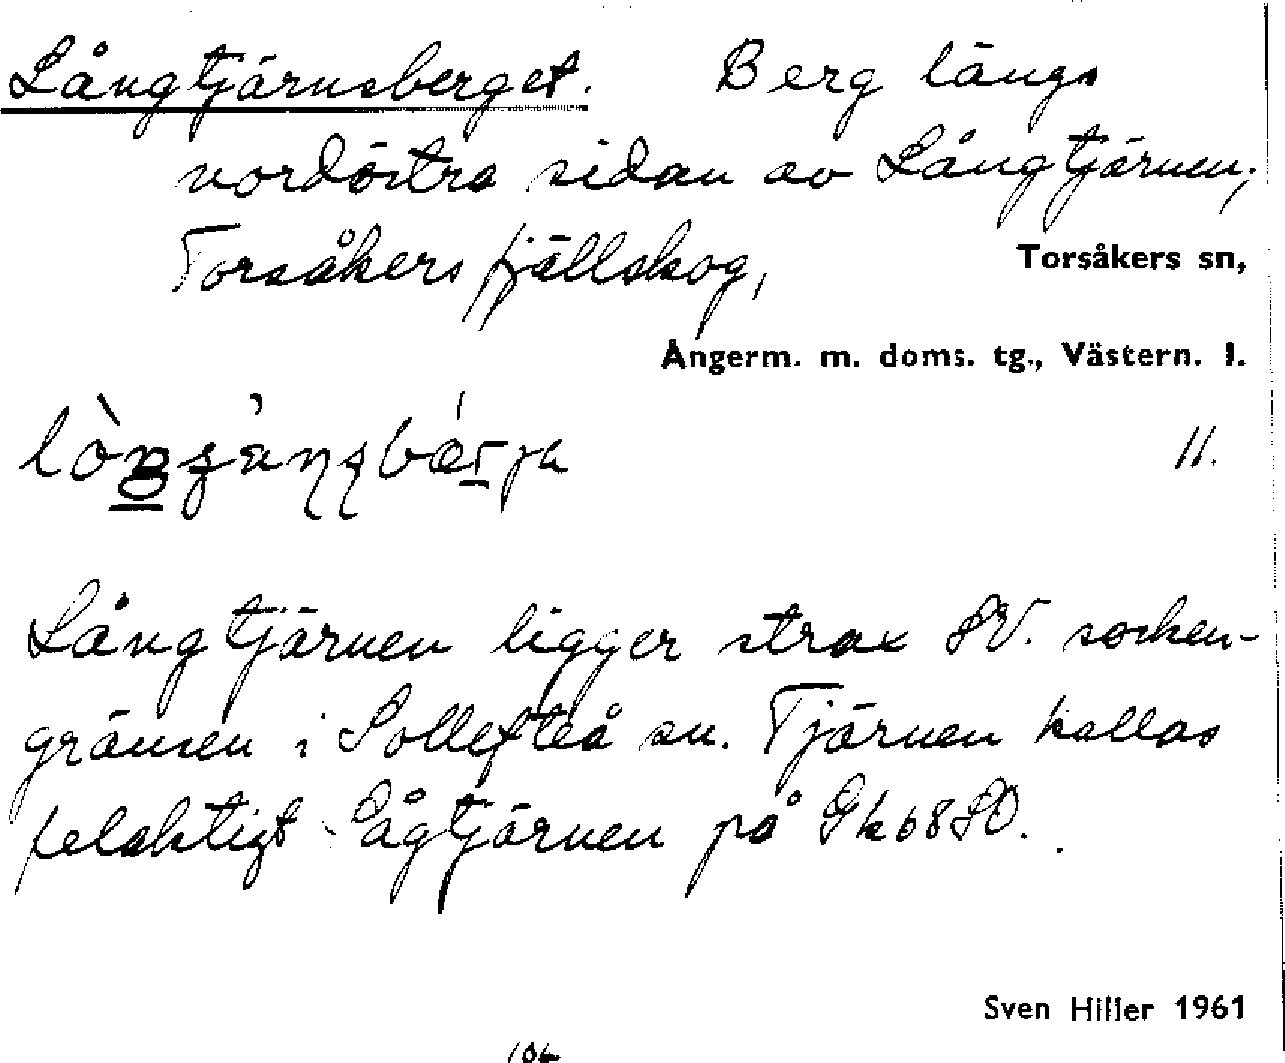 Långtjärnsberget. Berg längs
nordöstra sidan av Långtjärnen,
Torsåkers fjällskog, Torsåkers sn,
Ångerm. m. doms. tg., Västern. l.
11.
Långtjärnen ligger strax SV. socken-
gränsen i Sollefteå sn. Tjärnen kallas
felaktigt Sågtjärnen på Gk 68 SO.
Sven Hiller 1961